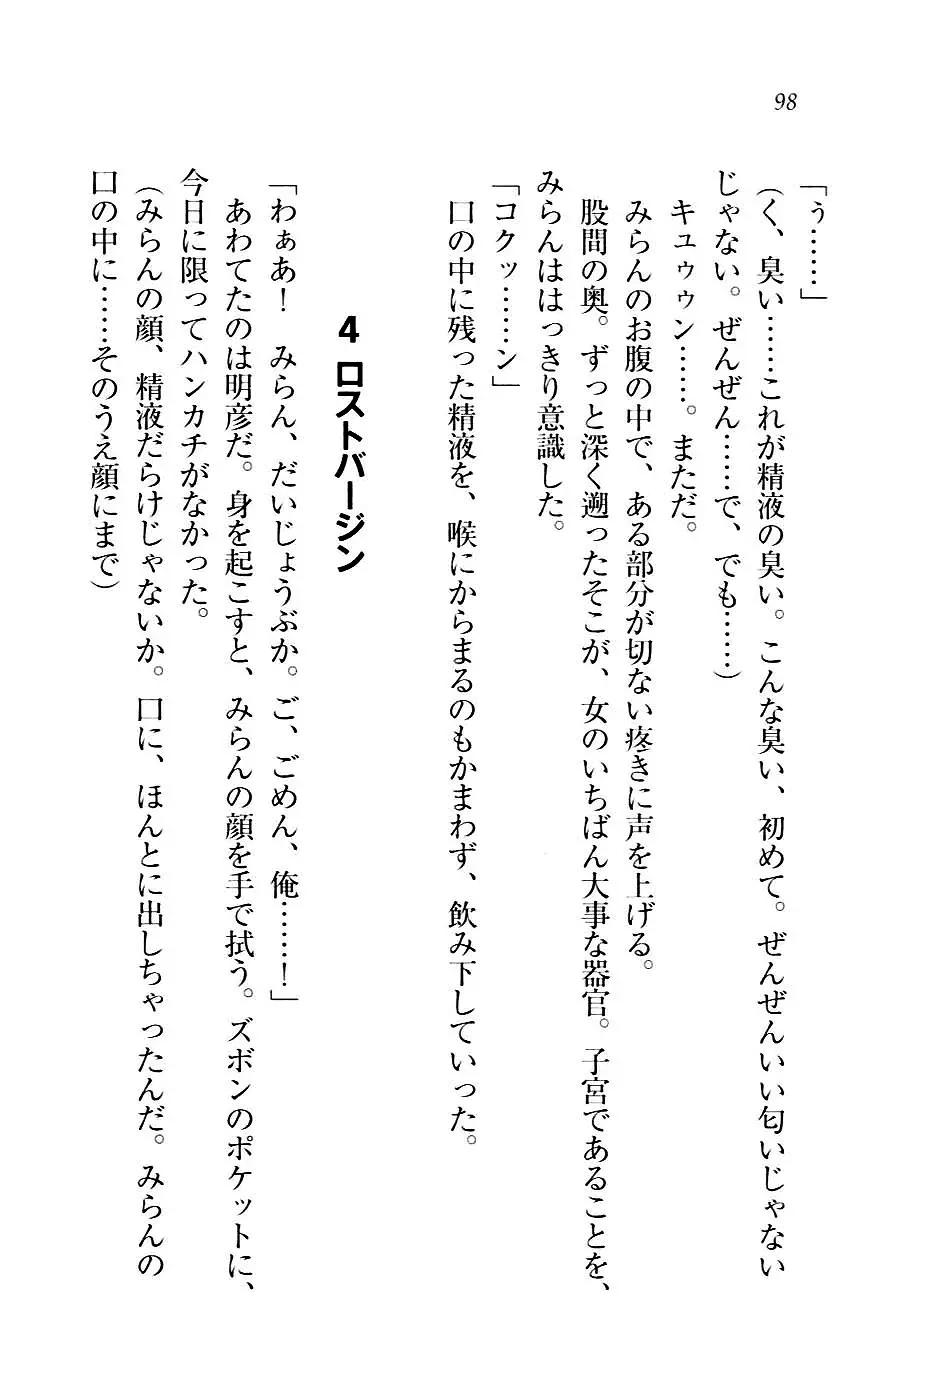 98
「ぅ……」
（く、臭い……これが精液の臭い。こんな臭い、初めて。ぜんぜんいい匂いじゃない
じゃない。ぜんぜん……で、でも……）
キュゥゥン……。まただ。
みらんのお腹の中で、ある部分が切ない疼きに声を上げる。
股間の奥。ずっと深く遡ったそこが、女のいちばん大事な器官。子宮であることを、
みらんははっきり意識した。
「コクッ……ン」
口の中に残った精液を、喉にからまるのもかまわず、飲み下していった。
4 ロストバージン
「わぁあ！　みらん、だいじょうぶか。ご、ごめん、俺……！」
あわてたのは明彦だ。身を起こすと、みらんの顔を手で拭う。ズボンのポケットに、
今日に限ってハンカチがなかった。
（みらんの顔、精液だらけじゃないか。口に、ほんとに出しちゃったんだ。みらんの
口の中に……そのうえ顔にまで）